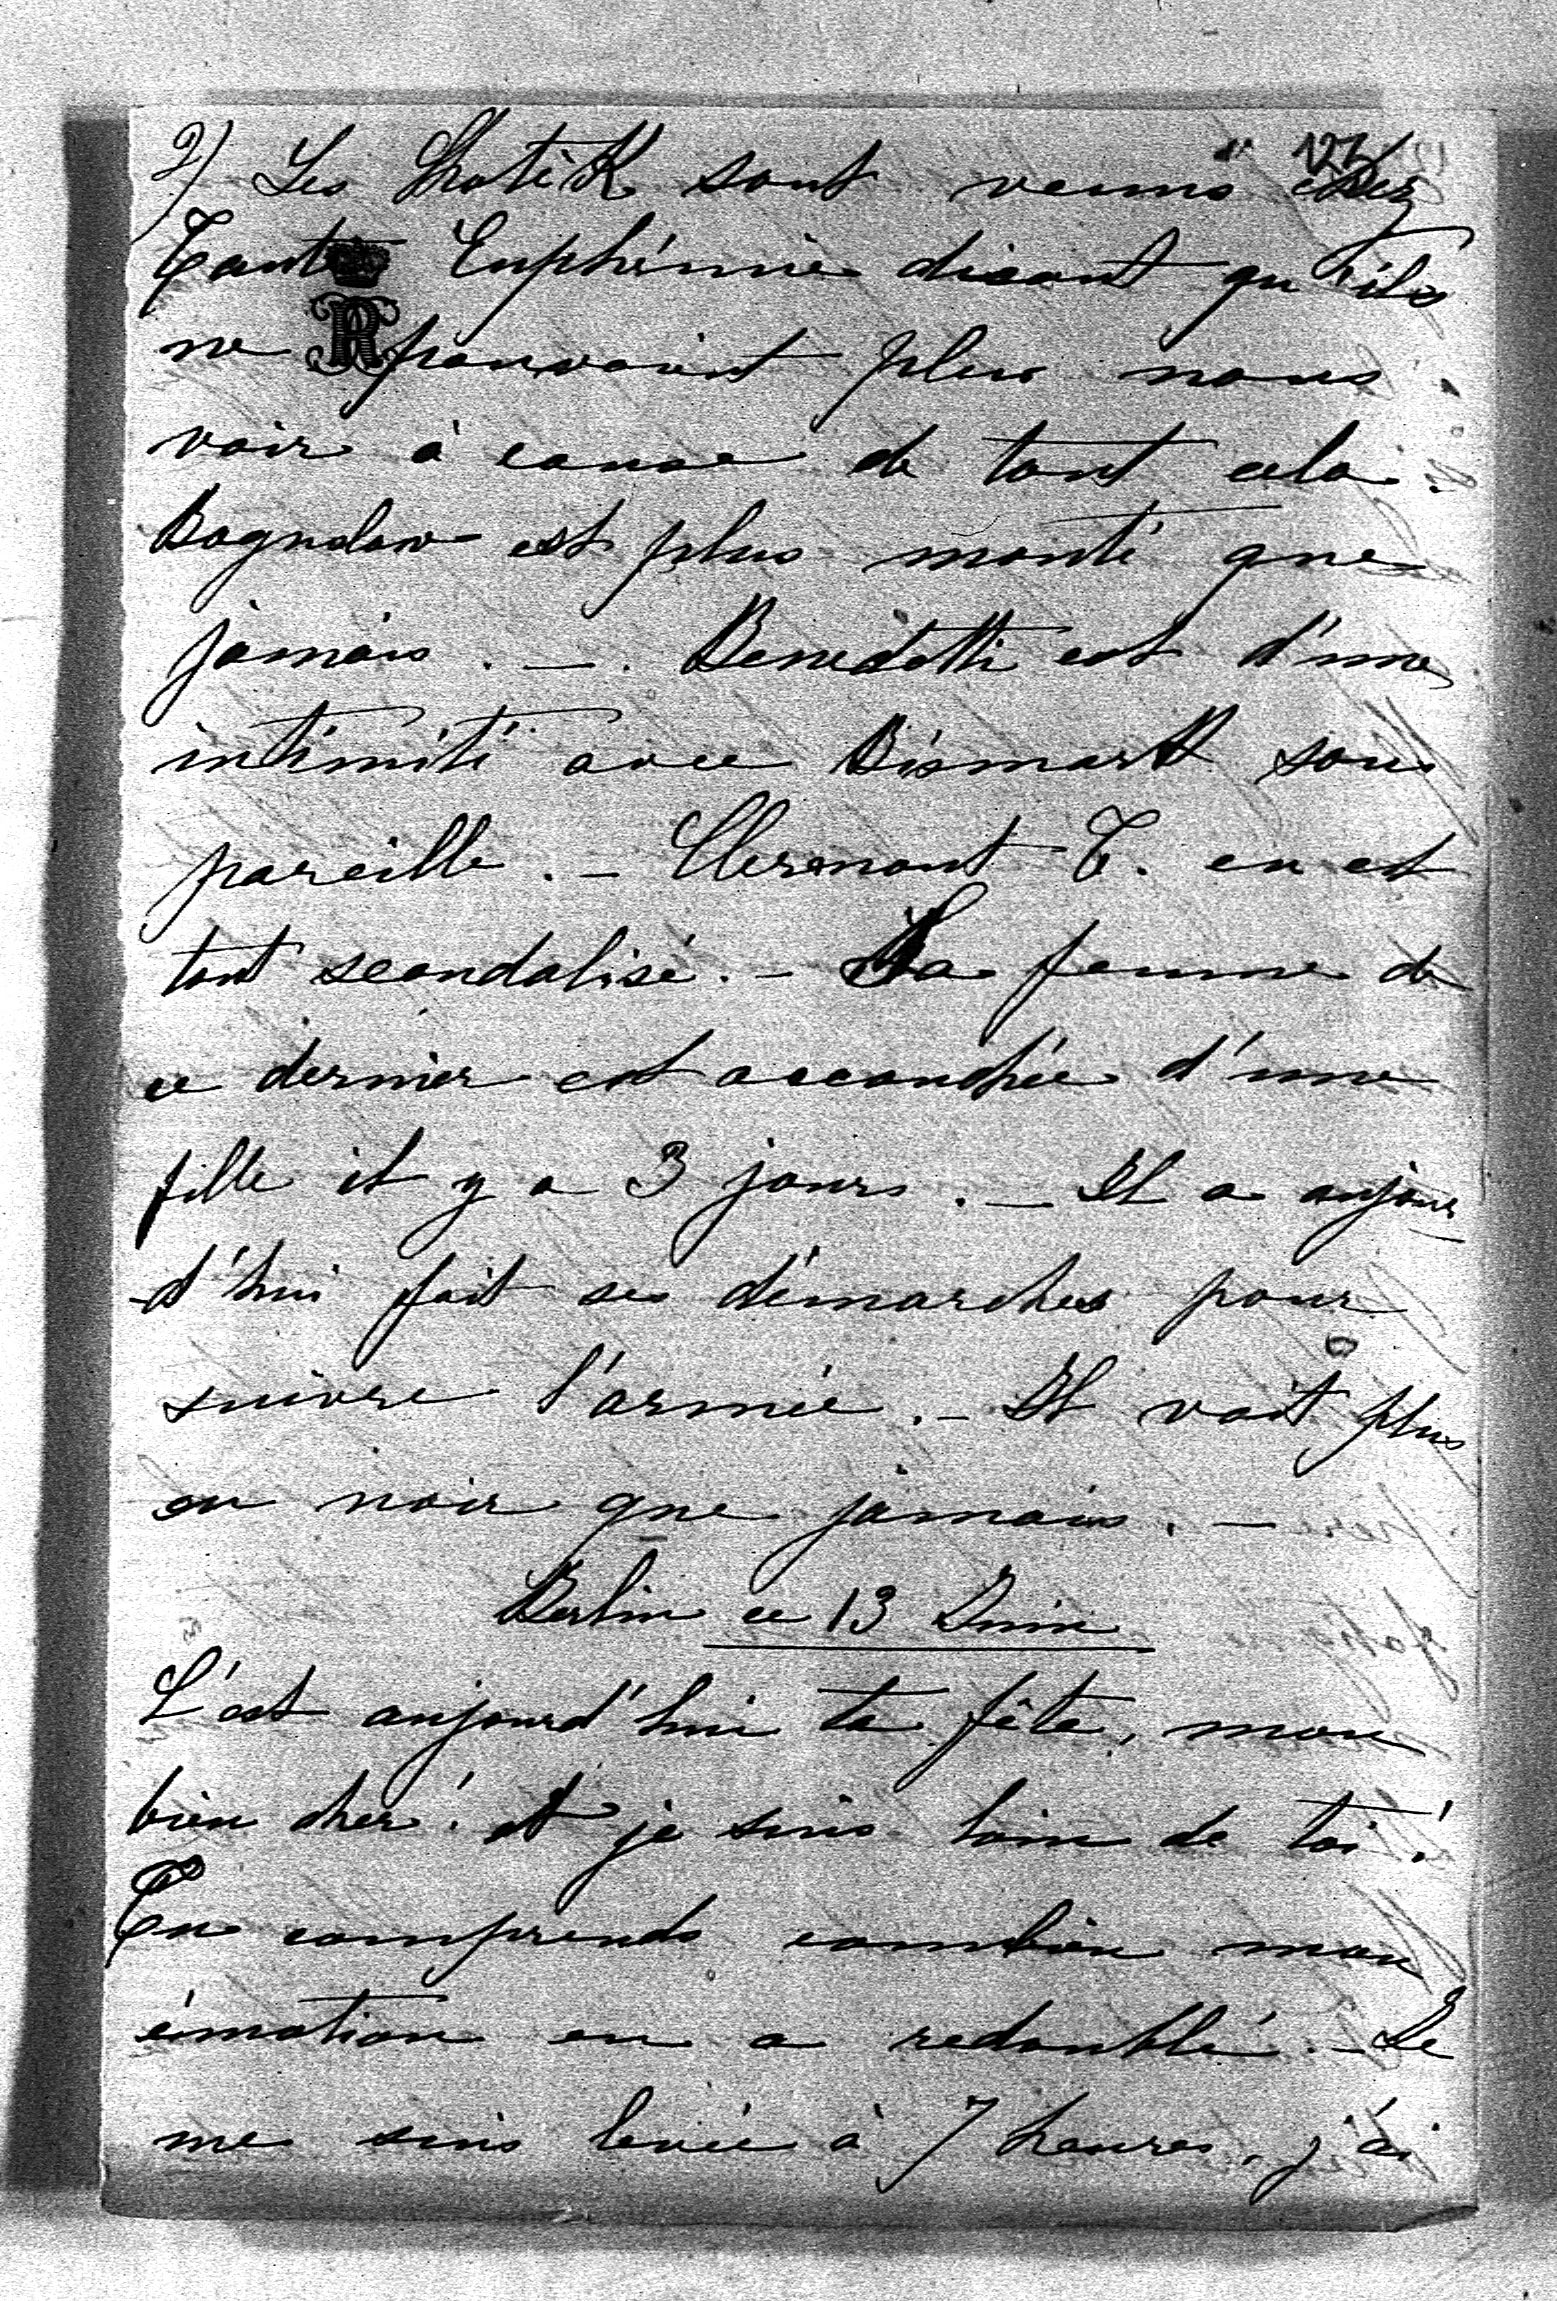 2) Les Chotek sont venus chez
Tante Euphémie disant qu'ils
ne pouvaient plus nous
voir à cause de tout cela.
Boguslaw est plus monté que
jamais. — . Benedetti est d'une
intimité avec Bismark sans
pareille. — Clermont T. en est
tout scandalisé. — La femme de
ce dernier est accouchée d'une
fille il y a 3 jours. — Il a aujour
-d'hui fait ses démarches pour
suivre l'armée. — Il voit plus
en noir que jamais. —
Berlin ce 13 Juin
C'est aujourd'hui ta fête, mon
bien cher! et je suis loin de toi!
Tu comprends combien mon
émotion en a redoublé. — Je
me suis levée à 7 heures, j'ai